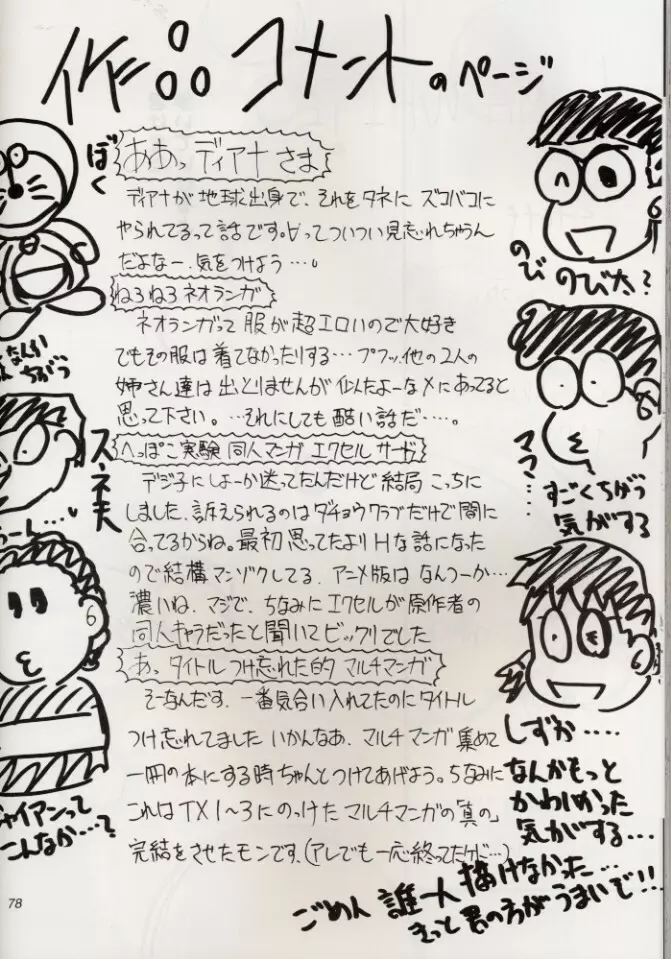 作品コメントのページ
ああっディアナさま
ディアナが地球出身で、それをタネにズコバコに
やられてるって話です。∀ってついつい見忘れちゃうん
だよなー、気をつけよう…。
ねろねろネオランガ
ネオランガって服が超エロいので大好き
でもその服は着てなかったりする…プフッ、他の2人の
姉さん達は出とりませんが似たよーなメにあってると
思って下さい。…それにしても酷い話だ…。
へっぽこ実験同人マンガエクセルサーガ
デジ子にしよーか迷ってたんだけど結局こっちに
しました、訴えられるのはダチョウクラブだけで間に
合ってるからね。最初思ってたよりHな話になった
ので結構マンゾクしてる、アニメ版はなんつーか…
濃いね、マジで、ちなみにエクセルが原作者の
同人キャラだったと聞いてビックリでした
あ、タイトルつけ忘れた的マルチマンガ
そーなんだす、一番気合い入れてたのにタイトル
つけ忘れてました いかんなあ、マルチマンガ集めて
一冊の本にする時ちゃんとつけてあげよう。ちなみに
これはTX1〜3にのっけたマルチマンガの「真の」
完結をさせたモンです、(アレでも一応終ってたけど…)
ぼく
なんか
ちがう
スネ夫
うーん…、
ジャイアンって
こんなか…?
のび のび太?
ママ…
すごくちがう
気がする
しずか…
なんかもっと
かわいかった
気がする…
ごめん 誰一人描けなかった…
きっと君の方がうまいで!!
78